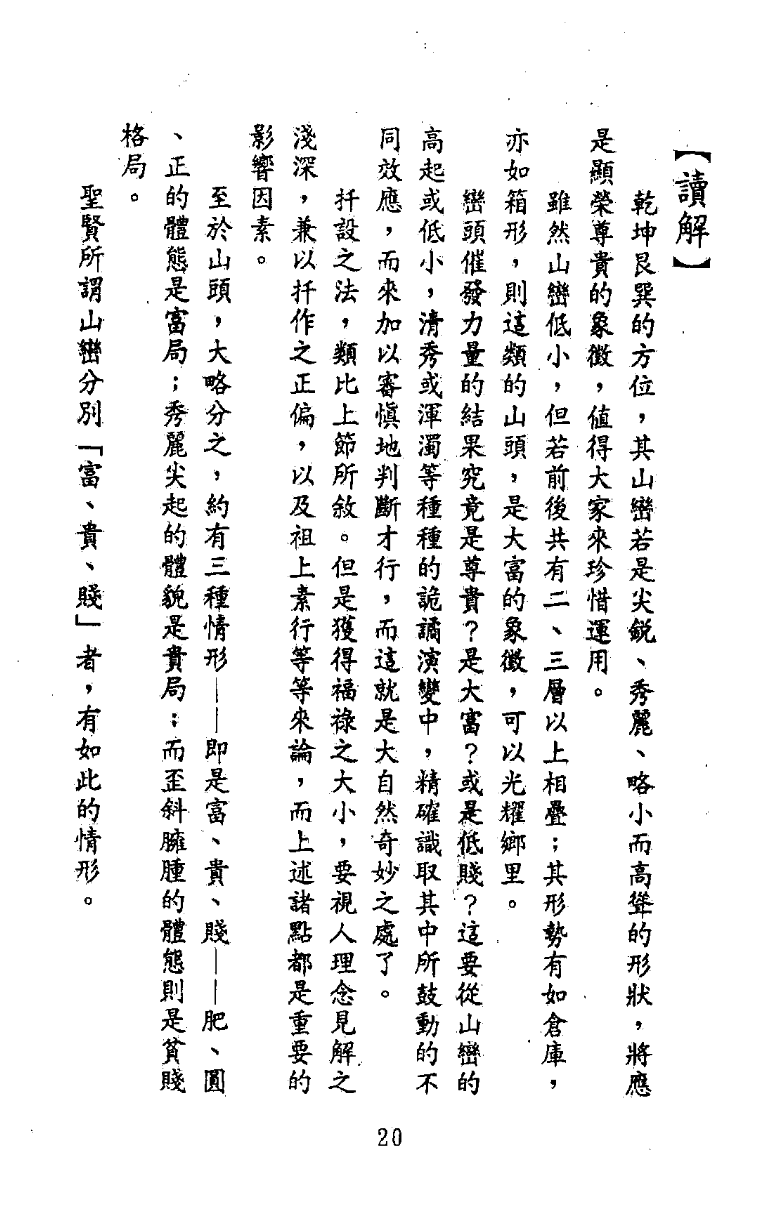 【讀解】
乾坤艮巽的方位，其山巒若是尖銳、秀麗、略小而高聳的形狀，將應
是顯榮尊貴的象徵，值得大家來珍惜運用。
雖然山巒低小，但若前後共有二、三層以上相疊；其形勢有如倉庫，
亦如箱形，則這類的山頭，是大富的象徵，可以光耀鄉里。
巒頭催發力量的結果究竟是尊貴？是大富？或是低賤？這要從山巒的
高起或低小，清秀或渾濁等種種的詭譎演變中，精確識取其中所鼓動的不
同效應，而來加以審慎地判斷才行，而這就是大自然奇妙之處了。
扦設之法，類比上節所敘。但是獲得福祿之大小，要視人理念見解之
淺深，兼以扦作之正偏，以及祖上素行等等來論，而上述諸點都是重要的
影響因素。
至於山頭，大略分之，約有三種情形──即是富、貴、賤──肥、圓
、正的體態是富局；秀麗尖起的體貌是貴局；而歪斜臃腫的體態則是貧賤
格局。
聖賢所謂山巒分別「富、貴、賤」者，有如此的情形。
20